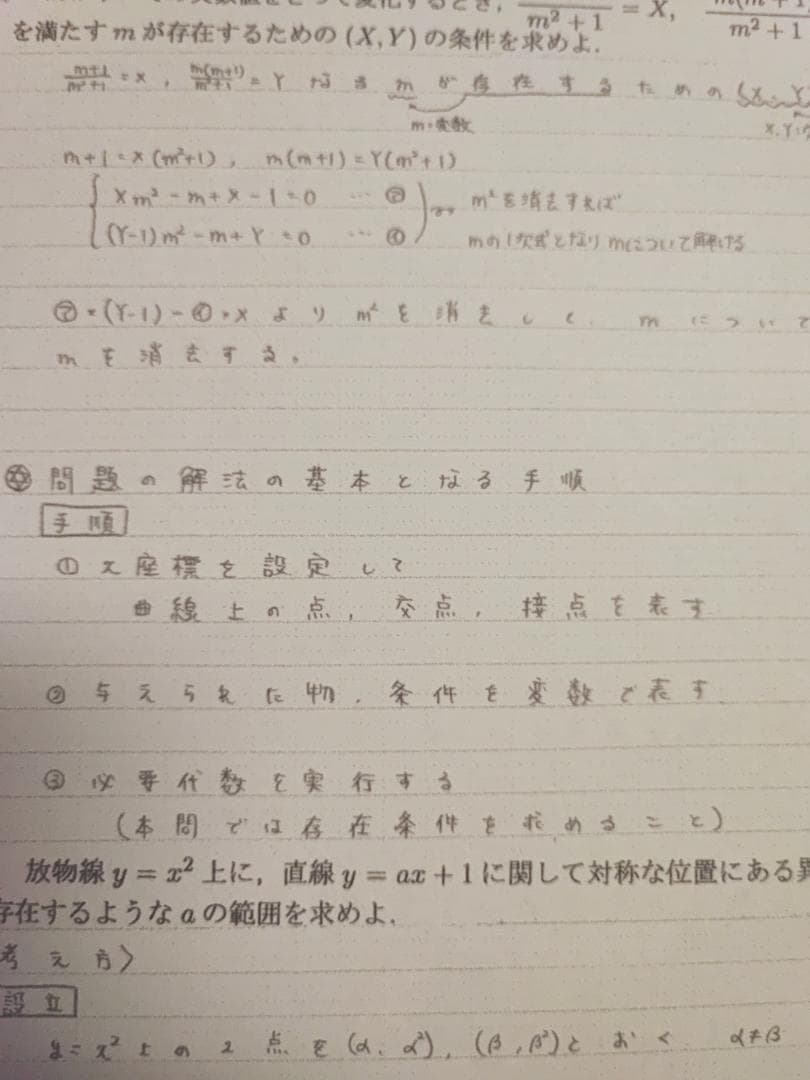 変化するとき, m² + 1 = X, m² + 1
を満たす m が存在するための (X, Y) の条件を求めよ.
m+1/m²+1 = X , m(m+1)/m²+1 = Y なる m が存在するための (X, Y
m・変数 X, Y:
m+1 = X(m²+1) , m(m+1) = Y(m²+1)
Xm² - m + X - 1 = 0 … ㋐ m²を消去すれば
(Y-1)m² - m + Y = 0 … ㋑ mの1次式となりmについて解ける
㋐×(Y-1) - ㋑×X より m² を消去して. m について
m を消去する。
問題の解法の基本となる手順
手順
① 座標を設定して
曲線上の点, 交点, 接点を表す
② 与えられた物, 条件を変数で表す
③ 必要代数を実行する
(本問では存在条件を求めること)
放物線 y = x² 上に, 直線 y = ax + 1 に関して対称な位置にある異
存在するような a の範囲を求めよ.
考え方〉
設立
y = x² 上の2点を (α, α²), (β, β²) とおく α≠β